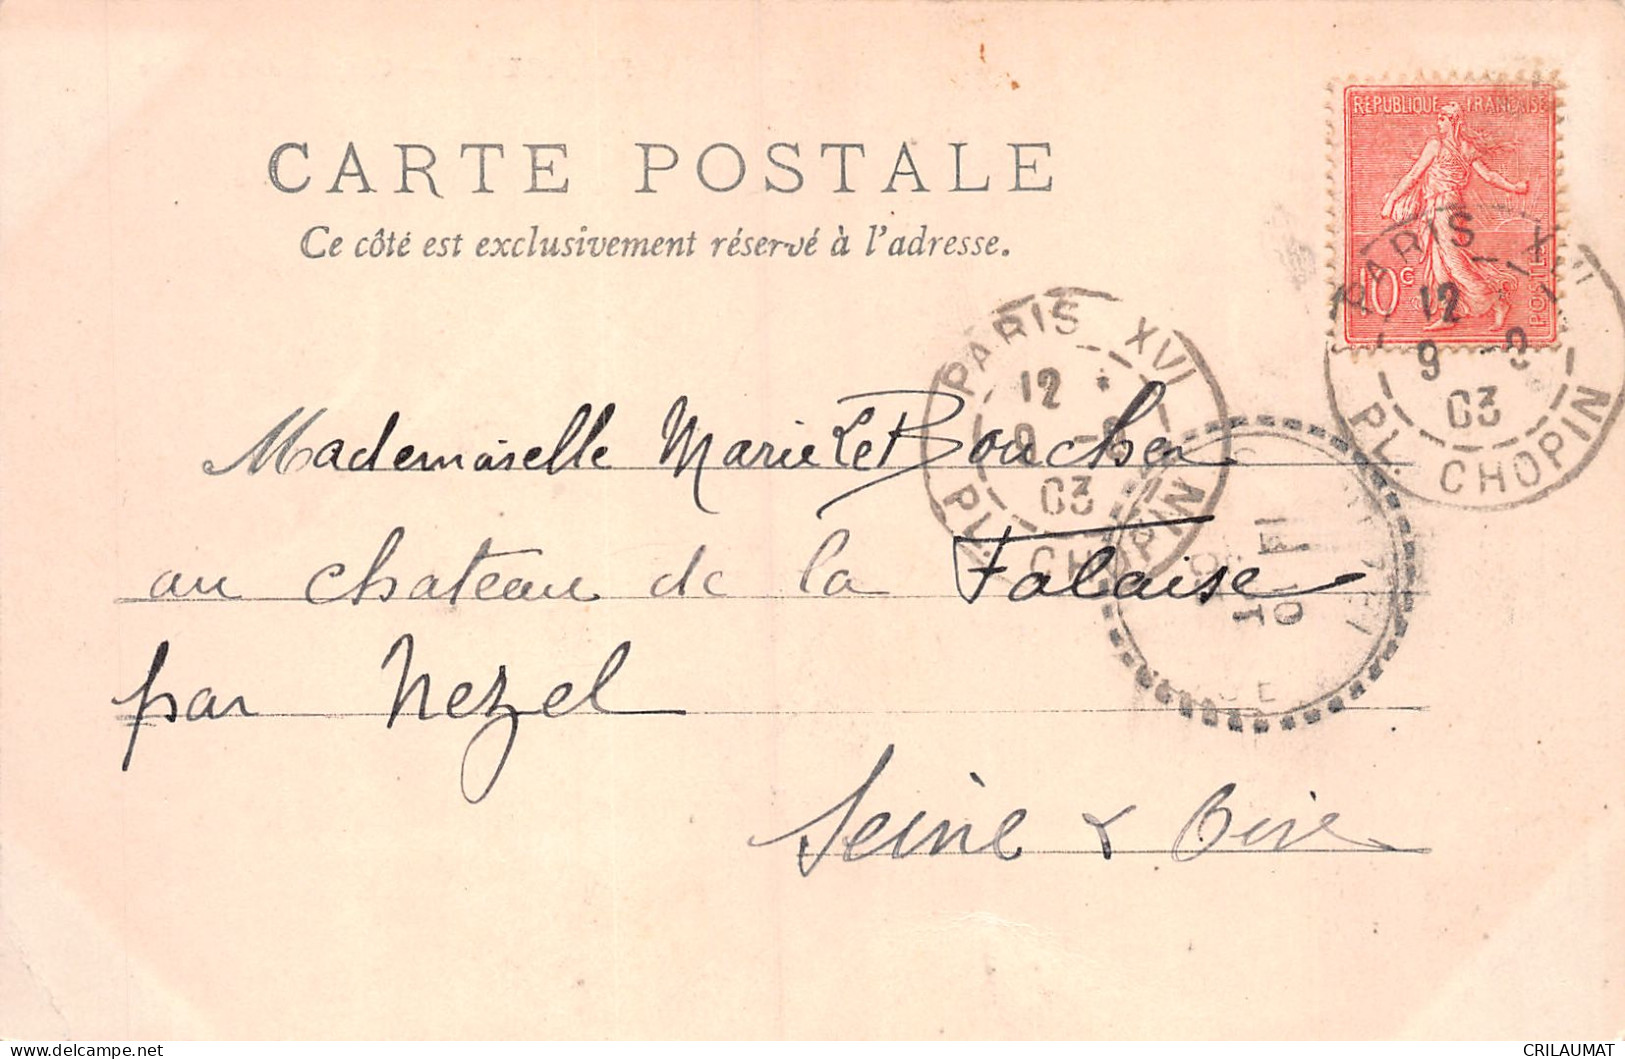 CARTE POSTALE
Ce côté est exclusivement réservé à l'adresse.
REPUBLIQUE FRANÇAISE
10c
POSTES
PARIS XVI
12
9
03
PL. CHOPIN
PARIS XVI
12 *
9
03
PL. CHOPIN
Mademoiselle Marie Le Boucher
au chateau de la Falaise
par Nezel
Seine & Oise
CRILAUMAT